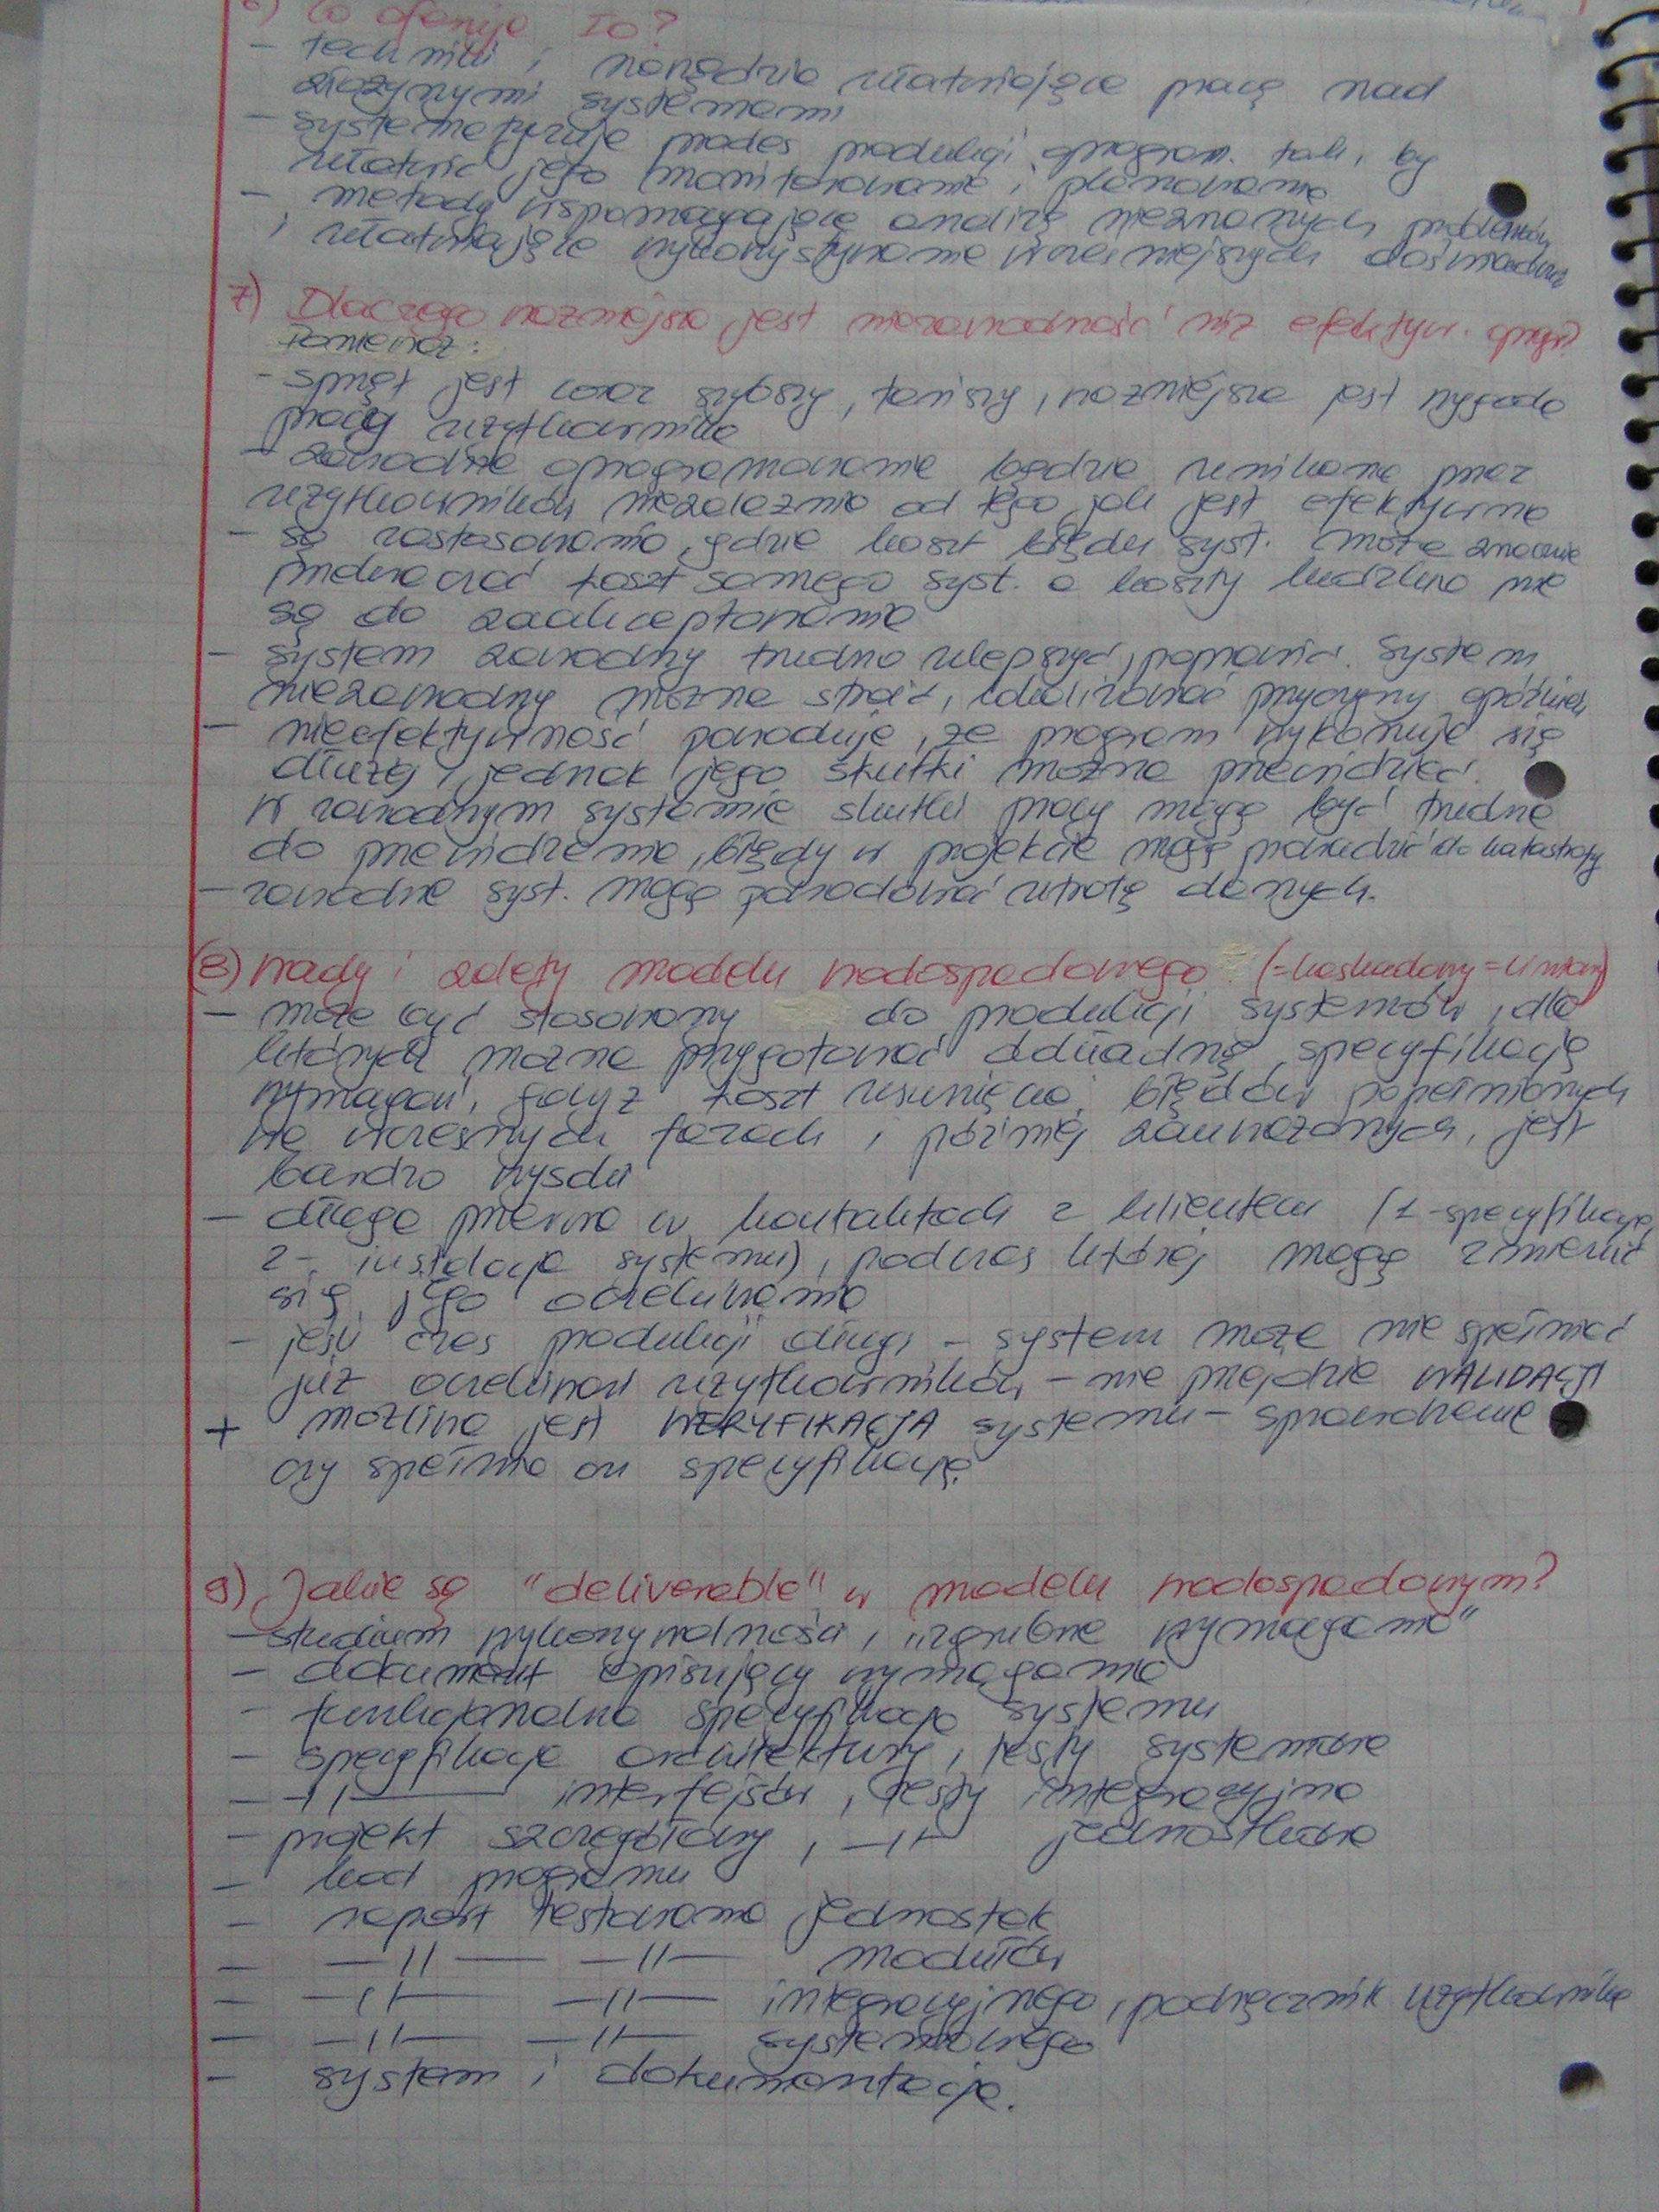 6) Co oferuje IO?
- techniki i narzędzia ułatwiające pracę nad
złożonymi systemami
- systematyzuje proces produkcji oprogram. tak, by
ułatwić jego monitorowanie i planowanie
- metody wspomagające analizę nieznanych problemów
i ułatwiające wykorzystywanie wcześniejszych doświadcz
7) Dlaczego ważniejsza jest niezawodność niż efektyw. opr?
Ponieważ:
- sprzęt jest coraz szybszy, tańszy, ważniejsza jest wygoda
pracy użytkownika
- zawodne oprogramowanie będzie unikane przez
użytkowników niezależnie od tego jak jest efektywne
- są zastosowania, gdzie koszt błędu syst. może znacznie
przekraczać koszt samego syst. a koszty ludzkie nie
są do zaakceptowania
- system zawodny trudno ulepszyć, poprawić. System
niezawodny można stroić, lokalizować przyczyny opóźnień
- nieefektywność powoduje, że program wykonuje się
dłużej, jednak jego skutki można przewidzieć.
W zawodnym systemie skutki pracy mogą być trudne
do przewidzenia, błędy w projekcie mogą prowadzić do katastrofy
- zawodne syst. mogą powodować utratę danych.
(8) Wady i zalety modelu wodospadowego (=kaskadowy=liniowy)
- może być stosowany do produkcji systemów, dla
których można przygotować dokładną specyfikację
wymagań, gdyż koszt usunięcia błędów popełnionych
we wczesnych fazach, później zauważonych, jest
bardzo wysoki
- długa przerwa w kontaktach z klientem (1-specyfikacja,
2- instalacja systemu), podczas której mogą zmienić
się jego oczekiwania
- jeśli czas produkcji długi - system może nie spełniać
już oczekiwań użytkowników - nie przejdzie WALIDACJI
+ możliwa jest WERYFIKACJA systemu - sprawdzenie
czy spełnia on specyfikację.
9) Jakie są "deliverable" w modelu wodospadowym?
- studium wykonywalności, "zgrubne wymagania"
- dokument opisujący wymagania
- funkcjonalna specyfikacja systemu
- specyfikacja architektury, testy systemowe
- —||— interfejsów, testy integracyjne
- projekt szczegółowy, —||— jednostkowe
- kod programu
- raport testowania jednostek
- —||— —||— modułów
- —||— —||— integracyjnego, podręcznik użytkownika
- —||— —||— systemowego
- system i dokumentacja.